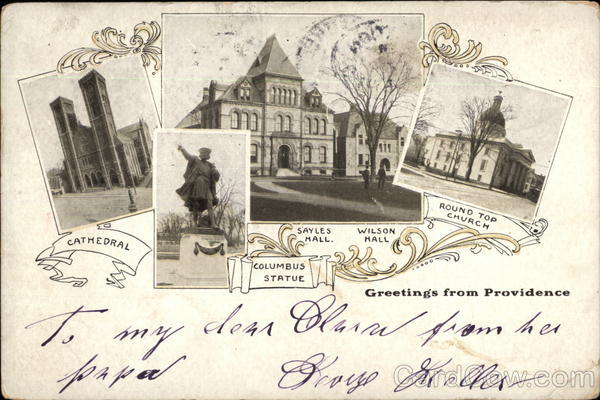 CATHEDRAL
COLUMBUS
STATUE
SAYLES
HALL.
WILSON
HALL
ROUND TOP
CHURCH
Greetings from Providence
To my dear Clara from her
papa George
CardCow.com